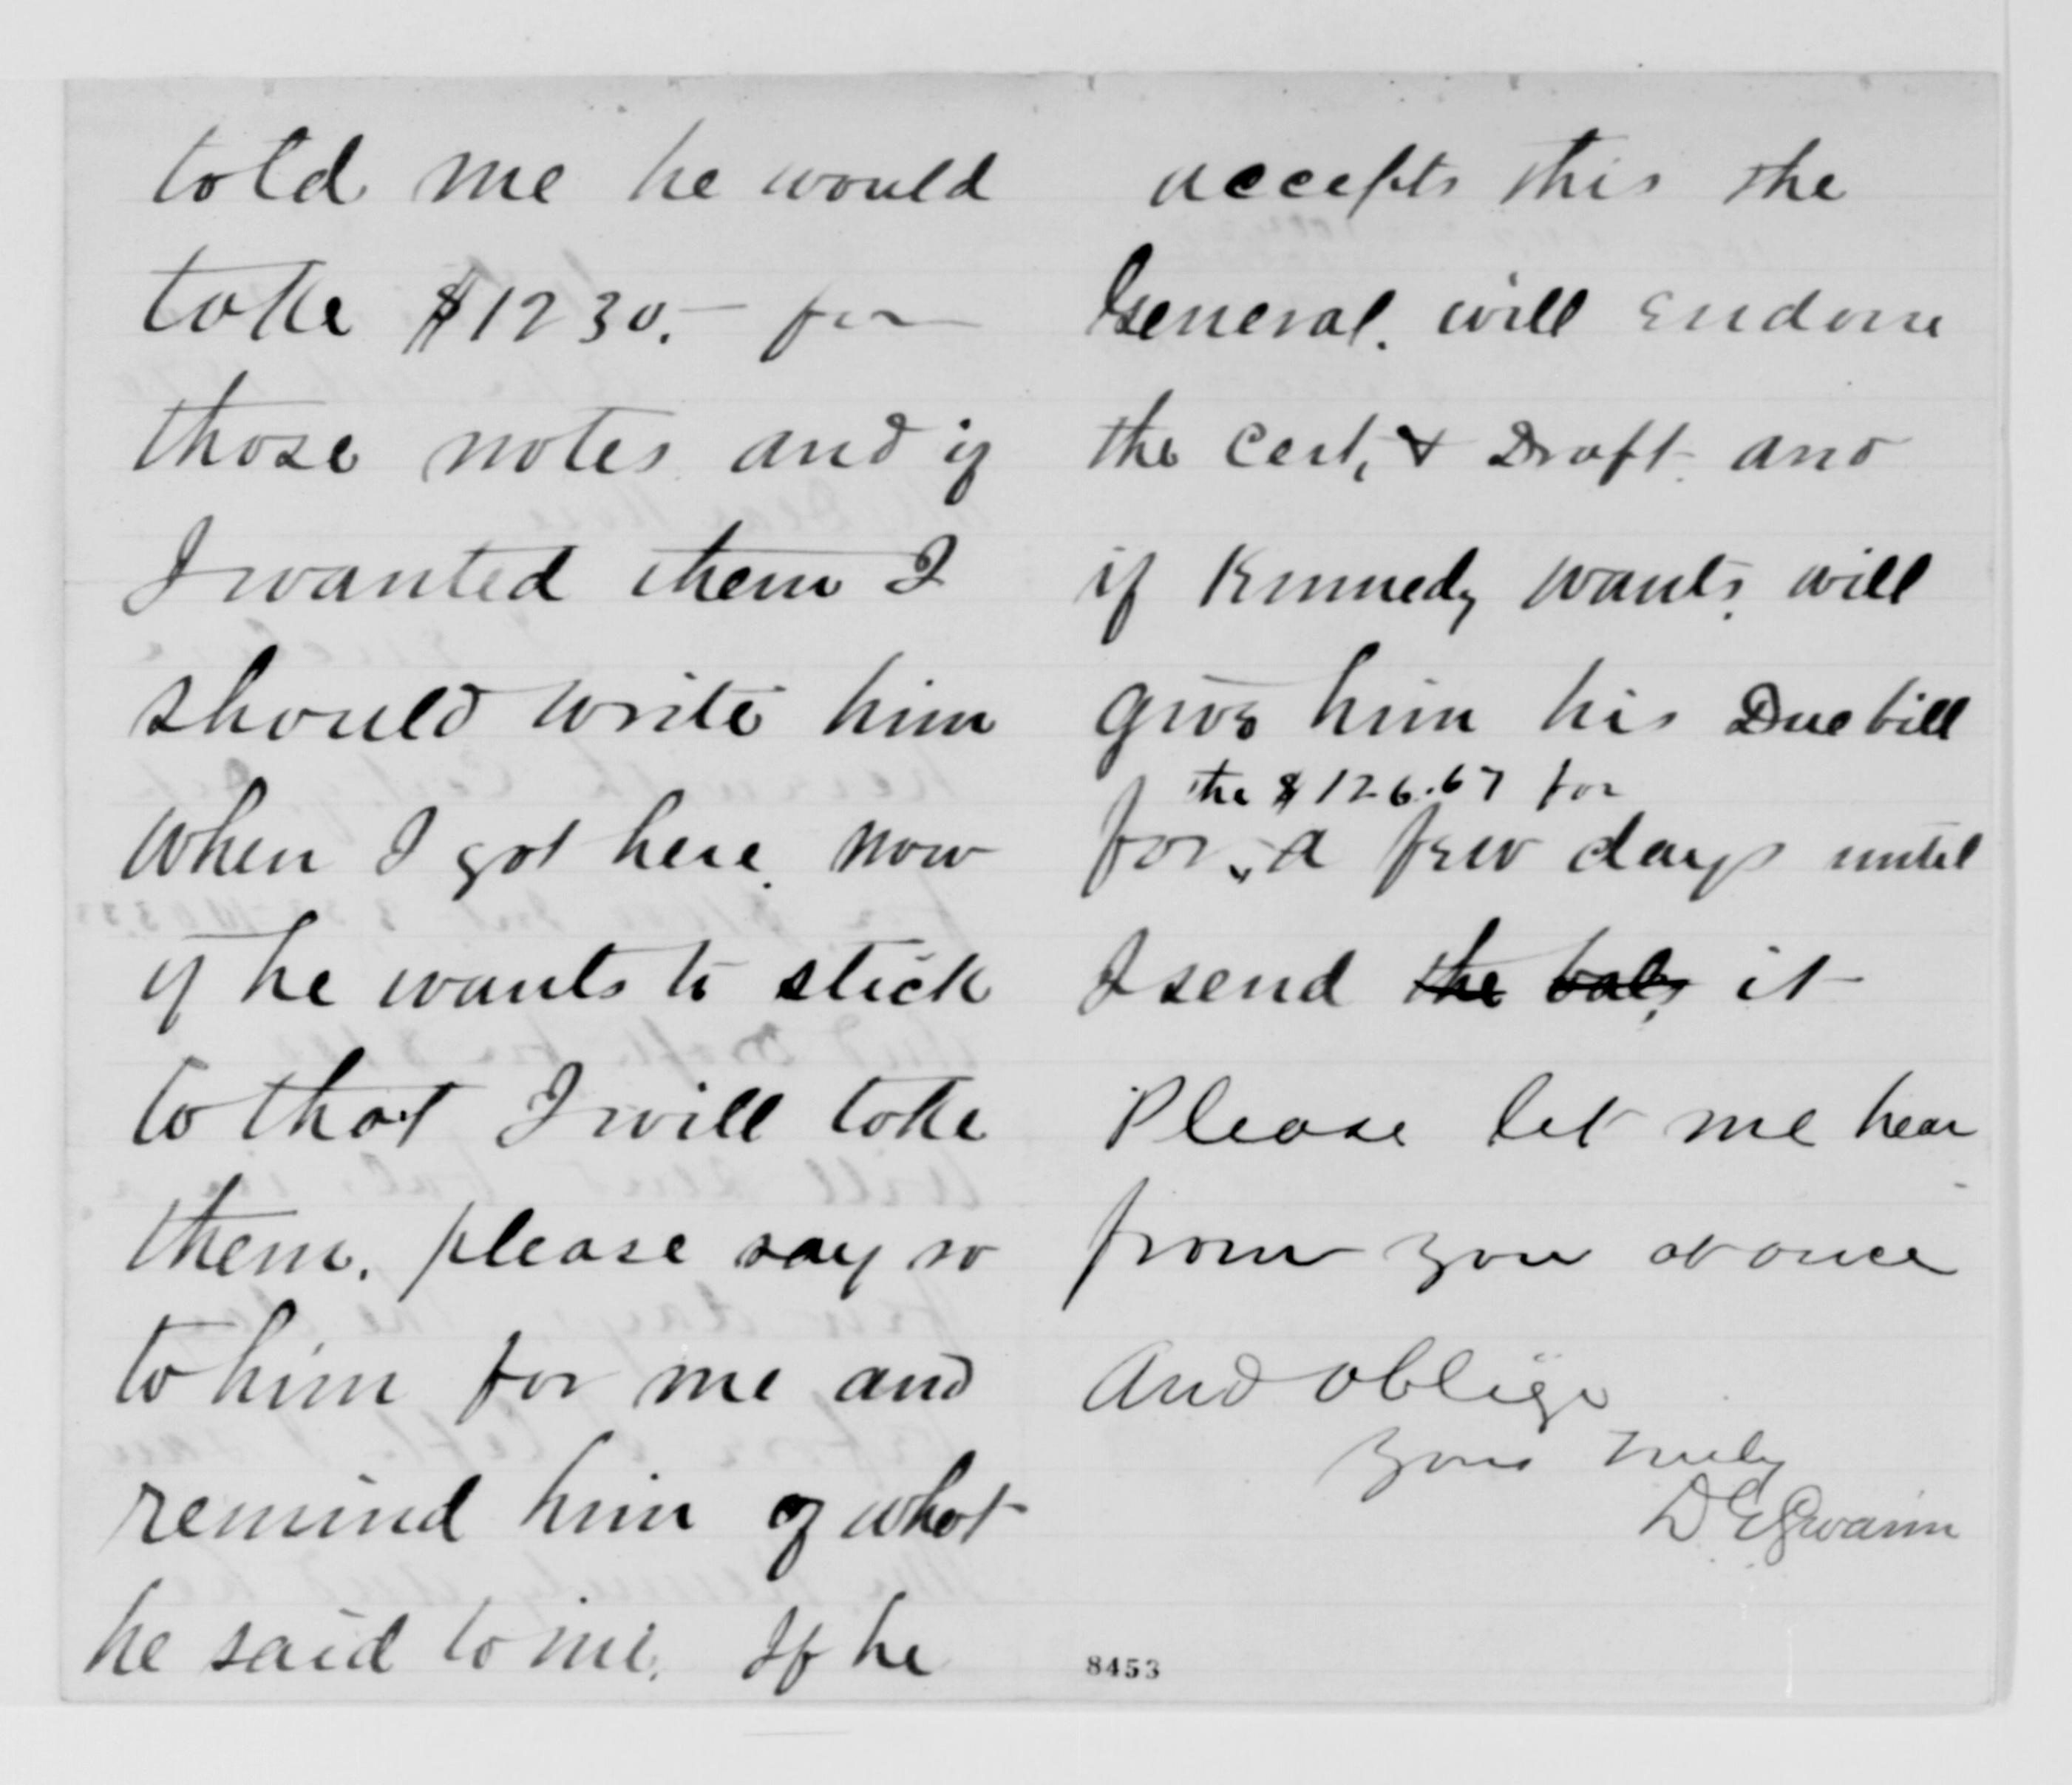 told me he would
take $1230.— for
those notes and if
I wanted them I
should write him
when I got here. now
if he wants to stick
to that I will take
them. please say so
to him for me and
remind him of what
he said to me. If he
accepts this the
General. will endorse
the Cert, & Draft and
if Kennedy wants. will
give him his Due bill
the $126.67 for
for a few days until
I send the bal, it
Please let me hear
from you at once
And oblige
Yours truly
D G Swaim
8453